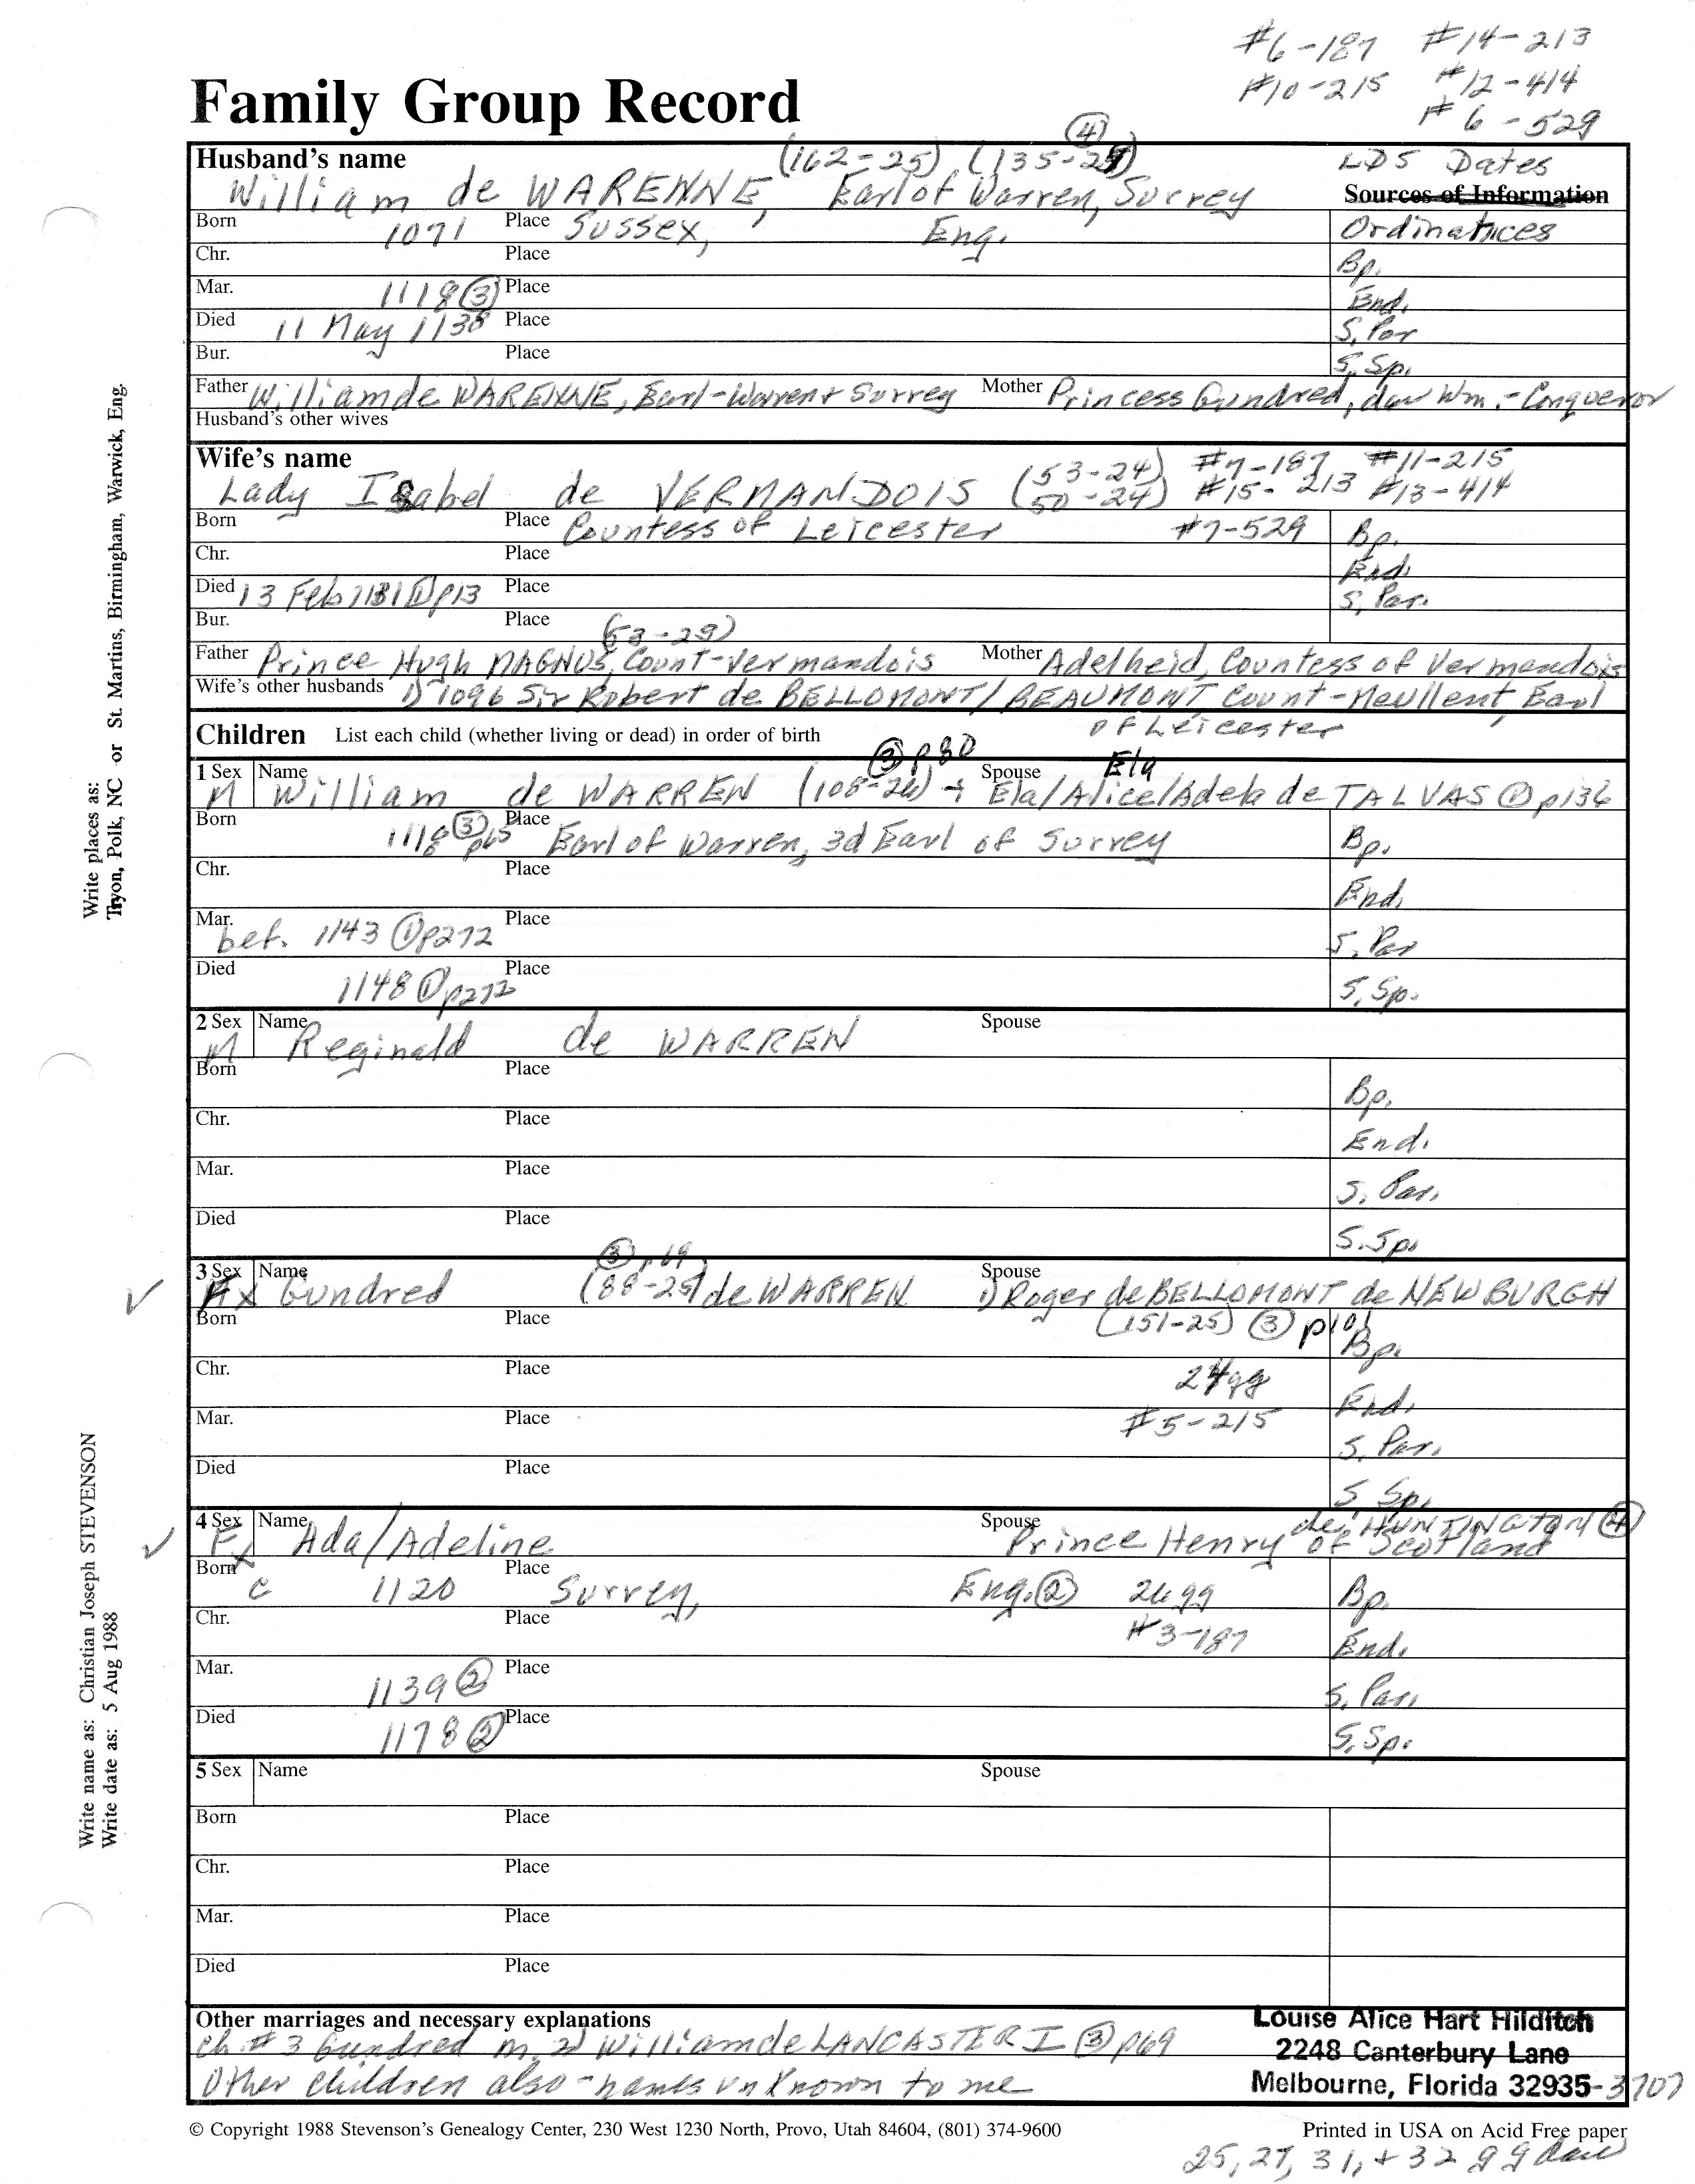 #6-187 #14-213
#10-215 #12-414
#6-529
Family Group Record
(162-25) (135-27) ④
Husband's name
William de WARENNE, Earl of Warren, Surrey
LDS Dates
Sources of Information
Born 1071 Place Sussex, Eng.
Ordinances
Chr. Place Bp.
Mar. 1118 ③ Place End.
Died 11 May 1138 Place S. Par
Bur. Place S, Sp.
Father William de WARENNE, Earl-Warren + Surrey Mother Princess Gundred, dau Wm.-Conqueror
Husband's other wives
Wife's name
Lady Isabel de VERMANDOIS (53-24) #7-187 #11-215
(50-24) #15-213 #13-414
Born Place Countess of Leicester #7-529 Bp.
Chr. Place End.
Died 13 Feb 1131 ① p13 Place S, Par.
Bur. Place
(53-29)
Father Prince Hugh MAGNUS, Count-Vermandois Mother Adelheid, Countess of Vermandois
Wife's other husbands 1) 1096 Sir Robert de BELLOMONT/BEAUMONT, Count-Meullent, Earl
of Leicester
Children List each child (whether living or dead) in order of birth
③ p80 Ela
1 Sex M Name William de WARREN (108-26) + Spouse Ela/Alice/Adela de TALVAS ① p136
Born 1118 ③ p65 Place Earl of Warren, 3d Earl of Surrey Bp.
Chr. Place End.
Mar. bef. 1143 ① p272 Place S, Par
Died 1148 ① p272 Place S, Sp.
2 Sex M Name Reginald de WARREN Spouse
Born Place Bp.
Chr. Place End.
Mar. Place S. Par.
Died Place S. Sp.
③ p69
3 Sex Fx Name Gundred (88-25) de WARREN Spouse 1) Roger de BELLOMONT de NEWBURGH
(151-25) ③ p101
Born Place Bp.
Chr. Place 24gg End.
Mar. Place #5-215 S, Par.
Died Place S Sp.
4 Sex Fx Name Ada/Adeline Spouse Prince Henry of Scotland de HUNTINGTON ④
Born c 1120 Place Surrey, Eng. ② 26gg Bp.
Chr. Place #3-187 End.
Mar. 1139 ② Place S. Par.
Died 1178 ② Place S, Sp.
5 Sex Name Spouse
Born Place
Chr. Place
Mar. Place
Died Place
Other marriages and necessary explanations
ch. #3 Gundred m. 2) William de LANCASTER I ③ p69
Other children also - names unknown to me
Louise Alice Hart Hilditch
2248 Canterbury Lane
Melbourne, Florida 32935-3707
© Copyright 1988 Stevenson's Genealogy Center, 230 West 1230 North, Provo, Utah 84604, (801) 374-9600
Printed in USA on Acid Free paper
25, 27, 31, + 32 gg dau
Write places as:
Tryon, Polk, NC or St. Martins, Birmingham, Warwick, Eng.
Write name as: Christian Joseph STEVENSON
Write date as: 5 Aug 1988